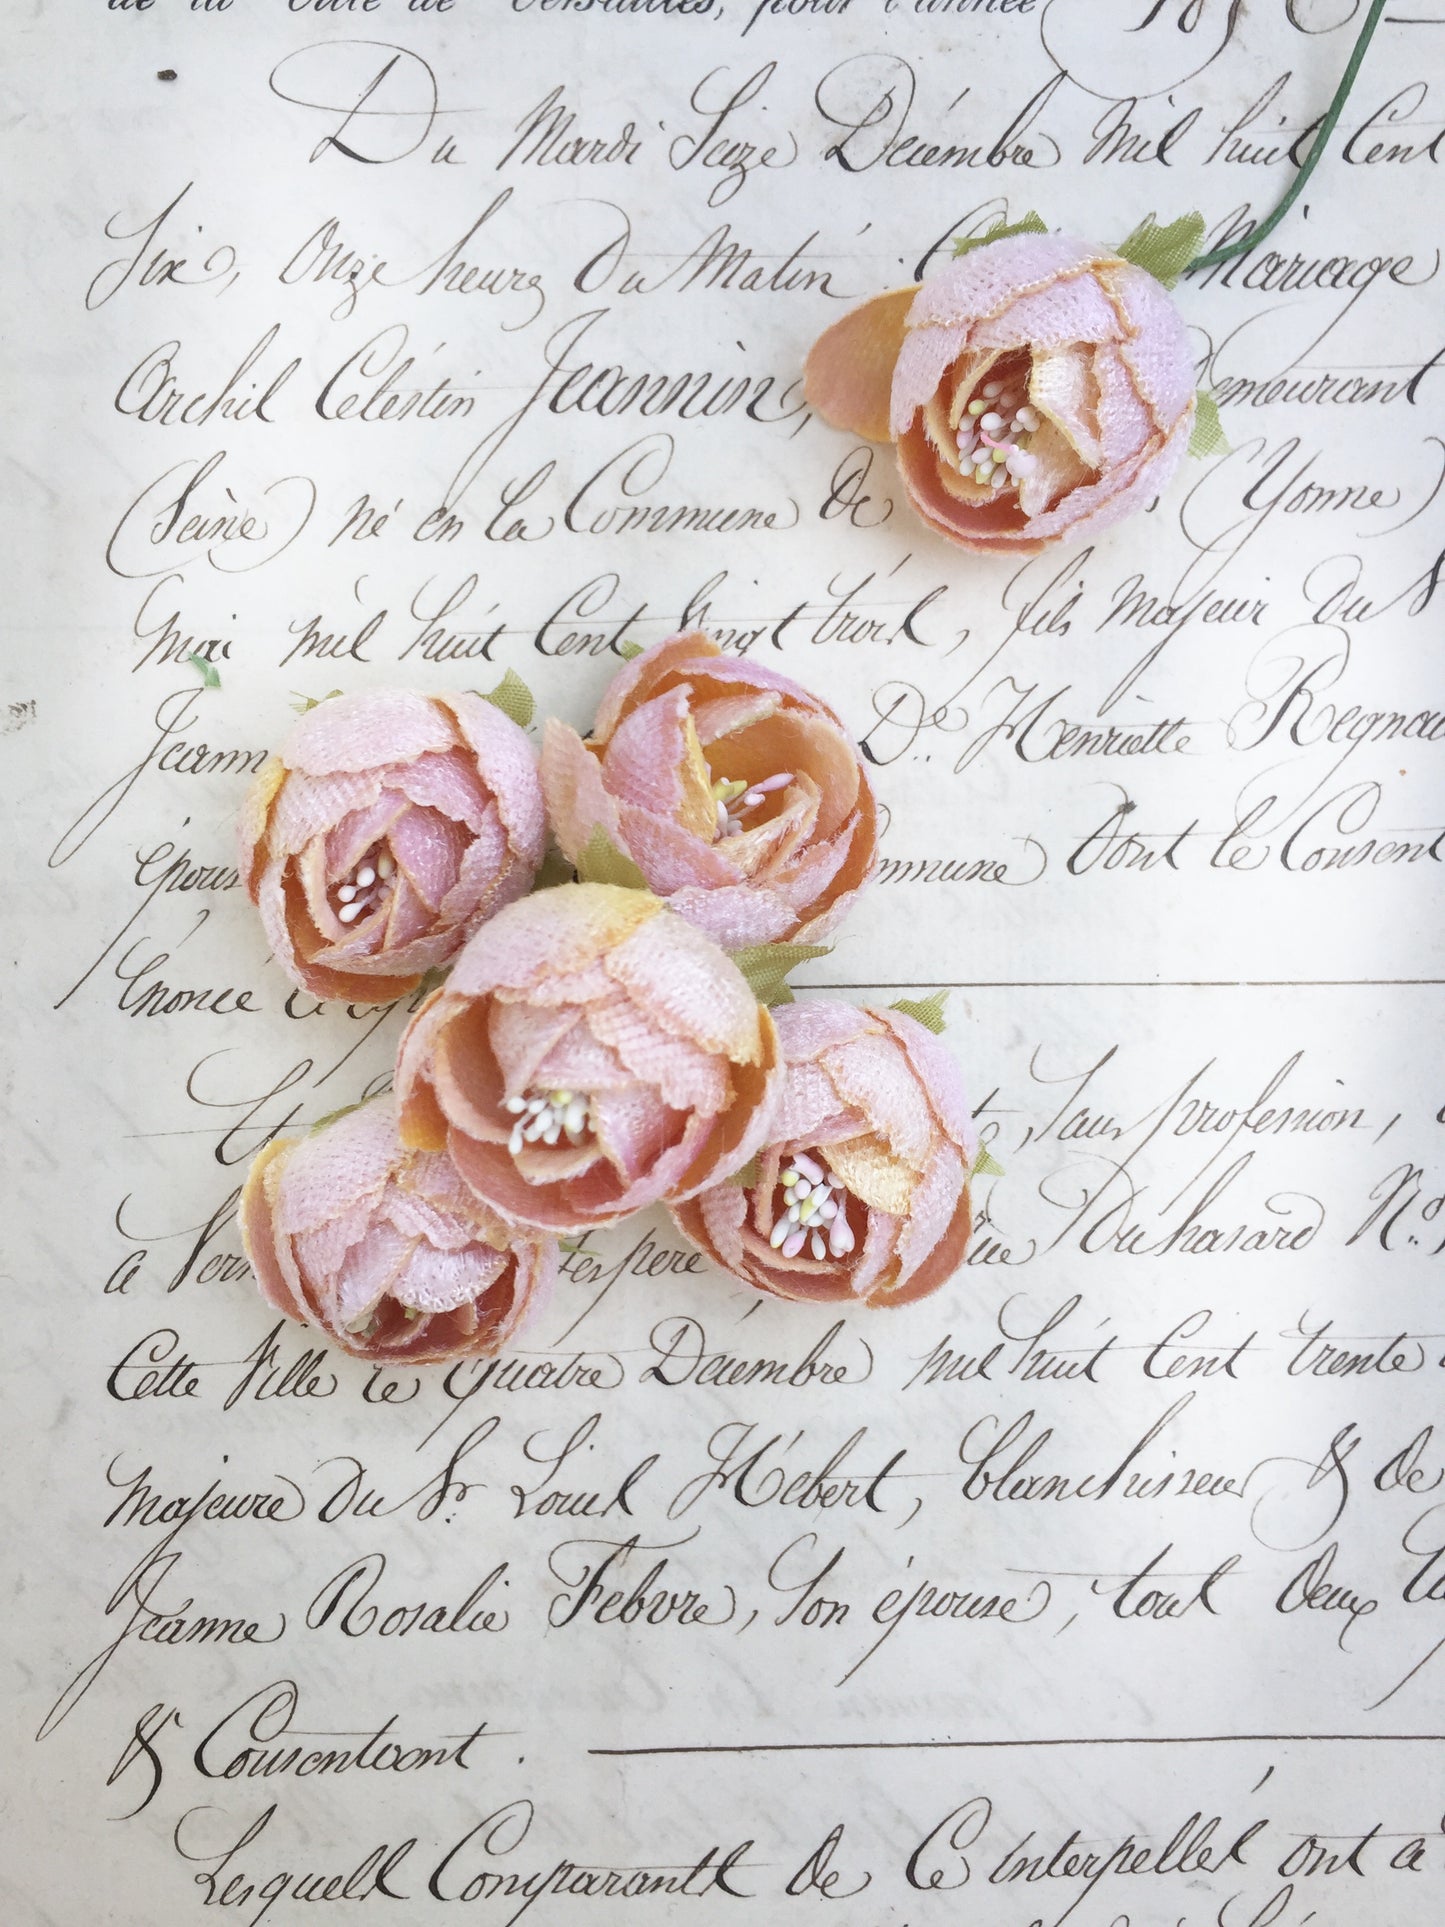 de la Ville de Versailles, pour l'année 185
Du Mardi Seize Décembre Mil huit Cent
Six, Onze heures Du Matin. Mariage
Archil Célestin Jeannin, Demeurant
(Seine) né en la Commune de , (Yonne)
Mai mil huit Cent Vingt trois, fils Majeur Du S
Jeann De. Henriette Regnau
épous mmune Dont le Consent
Enoncé Ci
Et , Sans profession,
a père rue Duhasard No.
Cette Ville le Quatre Décembre mil huit Cent trente
majeure Du Sr. Louis Hébert, blanchisseur & De
Jeanne Rosalie Febvre, Son épouse, tous Deux
& Consentant.
Lesquels Comparants De Ce interpellés ont a